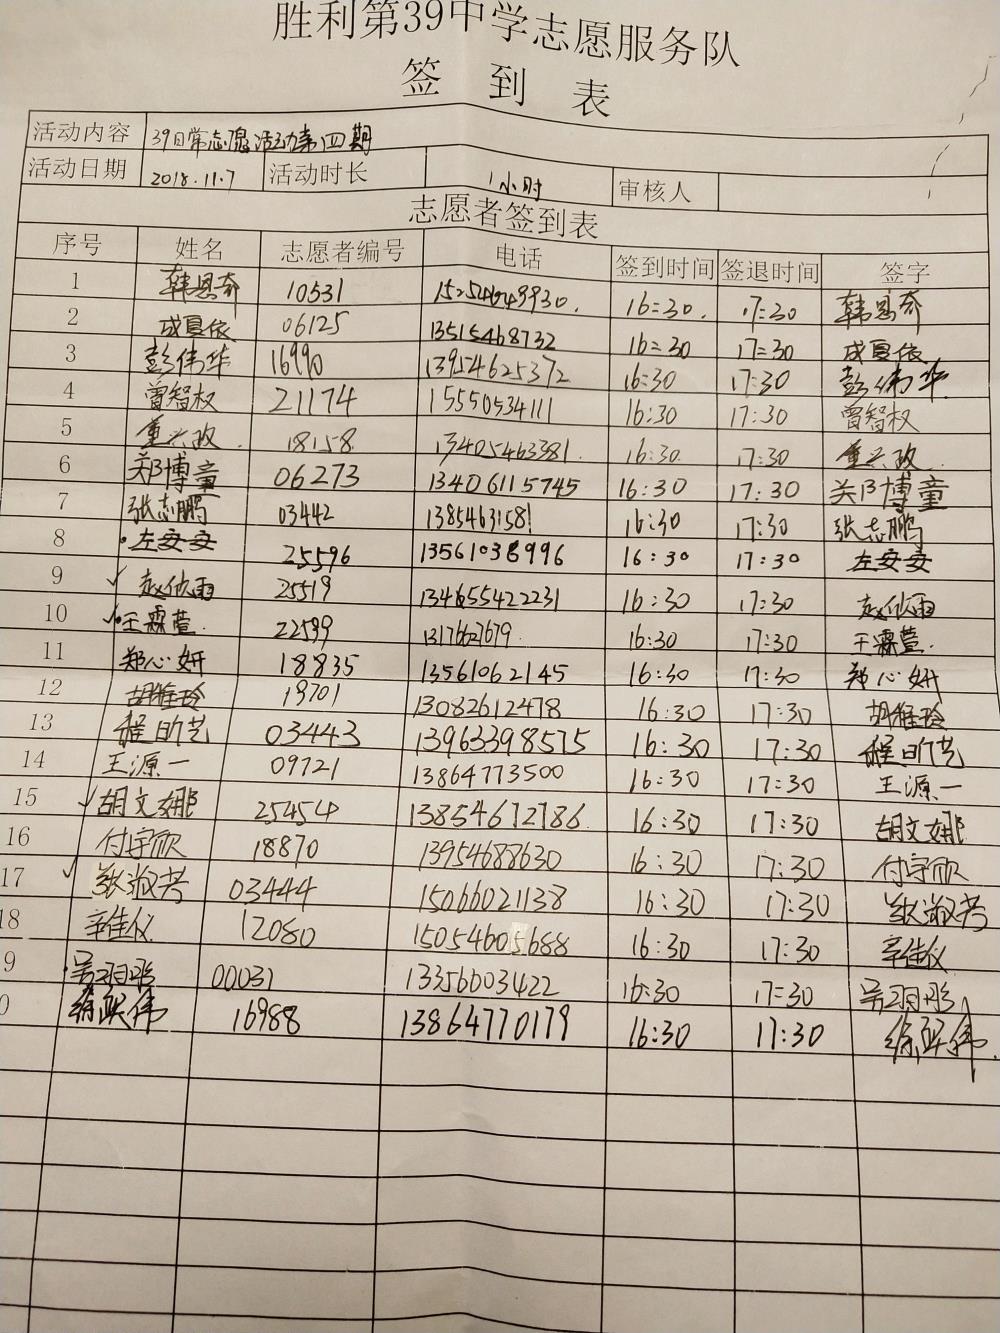 胜利第39中学志愿服务队
签 到 表
活动内容 39日常志愿活动第四期
活动日期 2018.11.7 活动时长 1小时 审核人
志愿者签到表
序号 姓名 志愿者编号 电话 签到时间 签退时间 签字
1 韩恩奇 10531 16:30. 17:30 韩恩奇
2 成夏依 06125 13515468732 16:30 17:30 成夏依
3 彭伟华 16990 13954625372 16:30 17:30 彭伟华
4 曾智权 21174 15550534111 16:30 17:30 曾智权
5 18158 13405463381 16:30 17:30
6 郑博童 06273 13406115745 16:30 17:30 郑博童
7 张志鹏 03442 1385463158 16:30 17:30 张志鹏
8 左安安 25596 13561038996 16:30 17:30 左安安
9 赵欣雨 25519 13465542231 16:30 17:30 赵欣雨
10 王霖萱 22599 1317627679 16:30 17:30 王霖萱
11 郑心妍 18835 13561062145 16:30 17:30 郑心妍
12 胡雅玲 19701 13082612478 16:30 17:30 胡雅玲
13 程昕艺 03443 13963398575 16:30 17:30 程昕艺
14 王源一 09721 13864773500 16:30 17:30 王源一
15 胡文娜 25454 13854672786 16:30 17:30 胡文娜
16 付宇欣 18870 13954688630 16:30 17:30 付宇欣
17 淑芳 03444 15066021138 16:30 17:30 淑芳
18 辛佳仪 12080 15054605688 16:30 17:30 辛佳仪
9 吴羽彤 00031 13356603422 16:30 17:30 吴羽彤
0 徐跃伟 16988 13864770179 16:30 17:30 徐跃伟